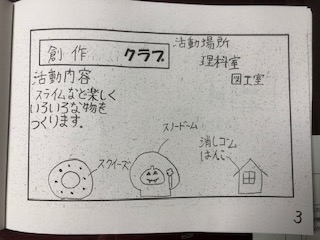 創作 クラブ
活動場所
理科室
図工室
活動内容
スライムなど楽しく
いろいろな物を
つくります。
スノードーム
スクイーズ
消しゴム
はんこ
3